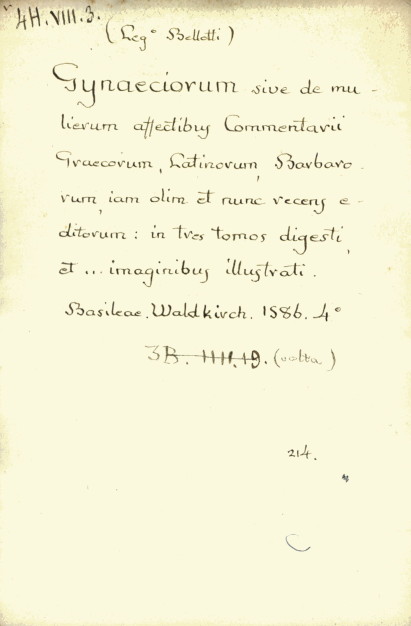 4H.VIII.3.
(Leg° Bellotti)
Gynaeciorum sive de mu-
lierum affectibus Commentarii
Graecorum, Latinorum, Barbaro-
rum, iam olim et nunc recens e-
ditorum: in tres tomos digesti,
et... imaginibus illustrati.
Basileae. Waldkirch. 1586. 4°
3B. IIII.19. (volta)
214.